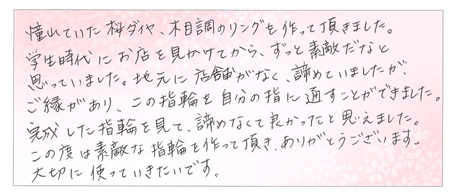 憧れていた桜ダイヤ、木目調のリングを作って頂きました。
学生時代にお店を見かけてから、ずっと素敵だなと
思っていました。地元に店舗がなく、諦めていましたが、
ご縁があり、この指輪を自分の指に通すことができました。
完成した指輪を見て、諦めなくて良かったと思えました。
この度は素敵な指輪を作って頂き、ありがとうございます。
大切に使っていきたいです。